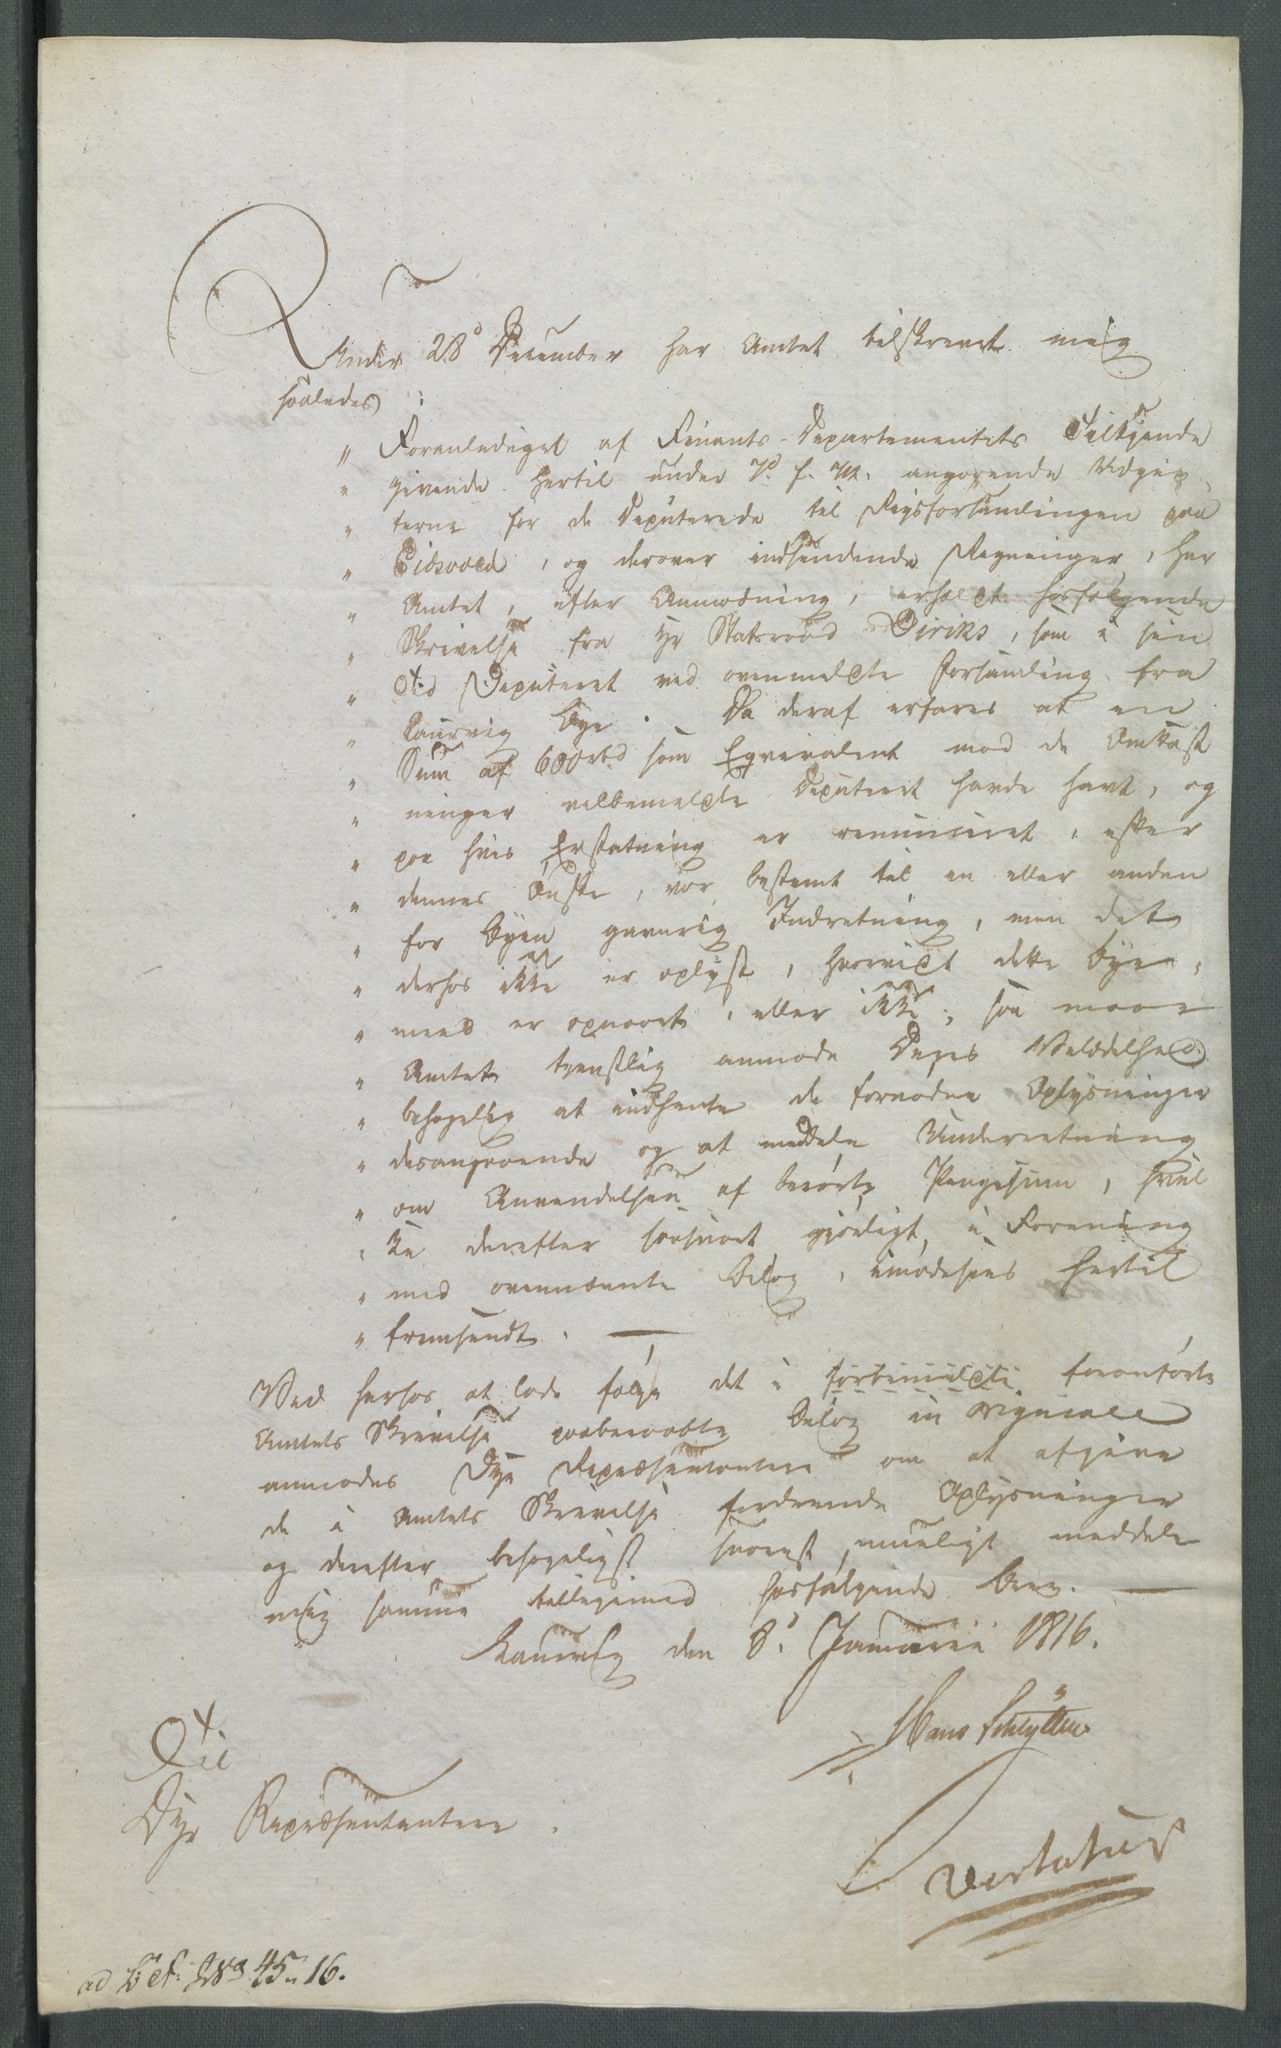 Under 28d December har Amtet tilskrevet mig
saaledes:
" Foranlediget af Finants-Departementets Tilkjende
" givende hertil under 7d f. M. angaaende Udgiv
" terne for de Deputerede til Rigsforsamlingen paa
" Eidsvold, og derover indsendende Regninger, har
" Amtet, efter Anmodning, erholdt hosfølgende
" Skrivelse fra Hr Statsraad Diriks, som i sin
" Tid Deputeret ved ovenmeldte Forsamling fra
" Laurvig Bye. Da deraf erfares at en
" Sum af 600rbd som Eqvivalent mod de Omkost
" ninger velbemeldte Deputeret havde havt, og
" paa hvis Erstatning er renunceret, efter
" dennes Ønske, var bestemt til en eller anden
" for Byen gavnlig Indretning, men det
" derhos ikke er oplyst, hvorvidt dette Øye,
" med er opnaaet, eller ikke; saa maae
" Amtet tjenstlig anmode Deres Velædelhed
" behagelig at indhente de fornødne Oplysninger
" desangaaende og at meddele Underretning
" om Anvendelsen af berørte Pengesum, hvil
" ke derefter saasnart gjørligt, i Forening
" med ovennævnte Bilag, imødesees hertil
" fremsendt. —
Ved herhos at lade følge det i foranførte
Amtets Skrivelse paaberaabte Bilag in originale
anmodes Bye Repræsentantere om at afgive
de i Amtets Skrivelse fordrende Oplysninger
og derefter behageligst snarest mueligt meddele
mig samme tilligemed hosfølgende Brev. —
Laurvig den 8d Januarii 1816.
Hans
Til
Bye Repræsentantere.
Vertatur
ad No 45. 16.